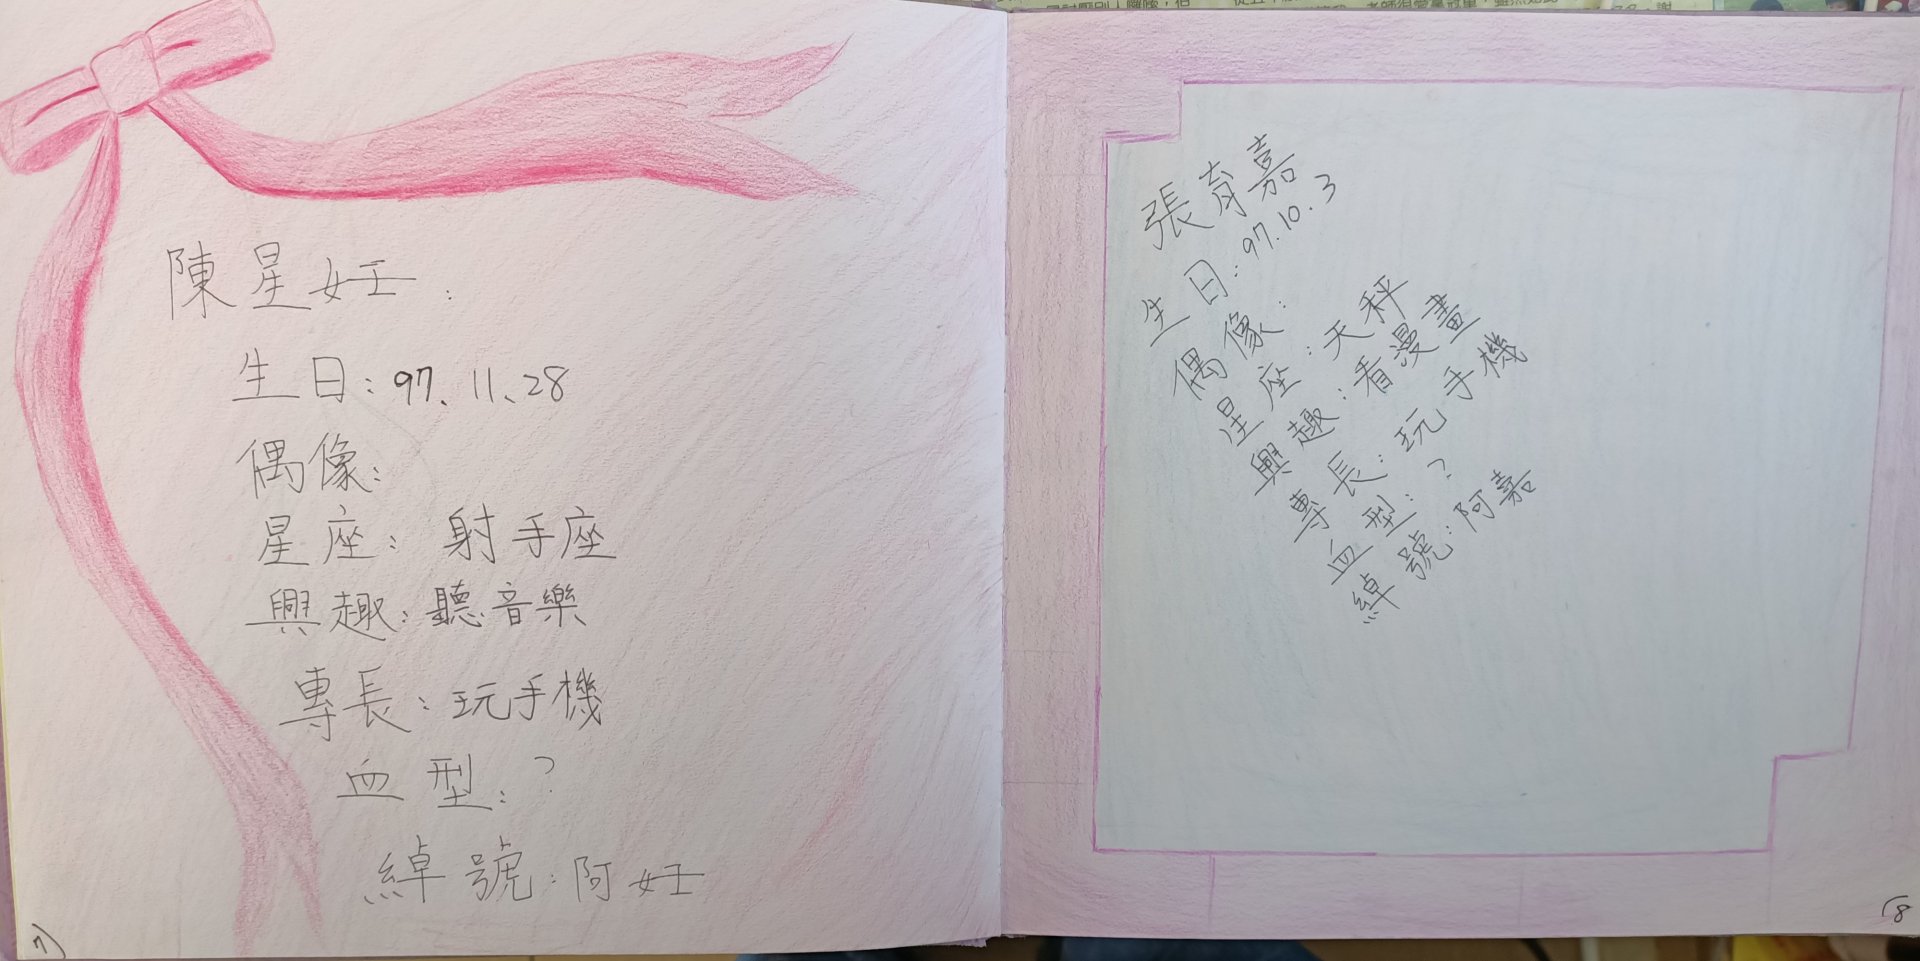 陳星妊:
生日:97、11、28
偶像:
星座:射手座
興趣:聽音樂
專長:玩手機
血型:?
綽號:阿妊
7)
張育嘉
生日:97.10.3
偶像:
星座:天秤
興趣:看漫畫
專長:玩手機
血型:?
綽號:阿嘉
(8